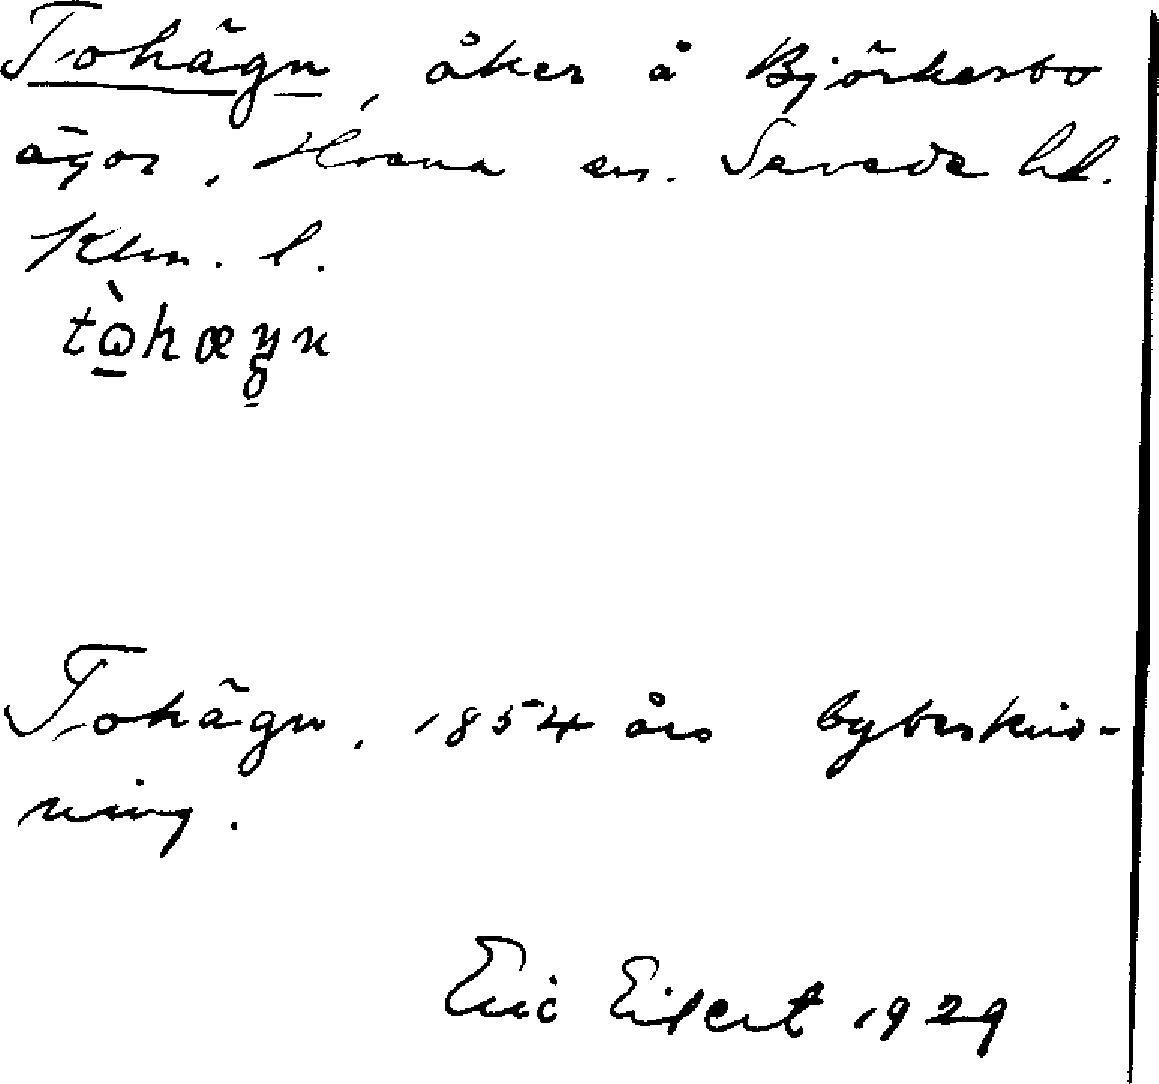 Tohägn, åker å Björkesbo
ägor, Hvena sn. Sevede hd.
Klm. l.
Tohägn, 1854 års bybeskriv-
ning.
Eric Eilert 1929